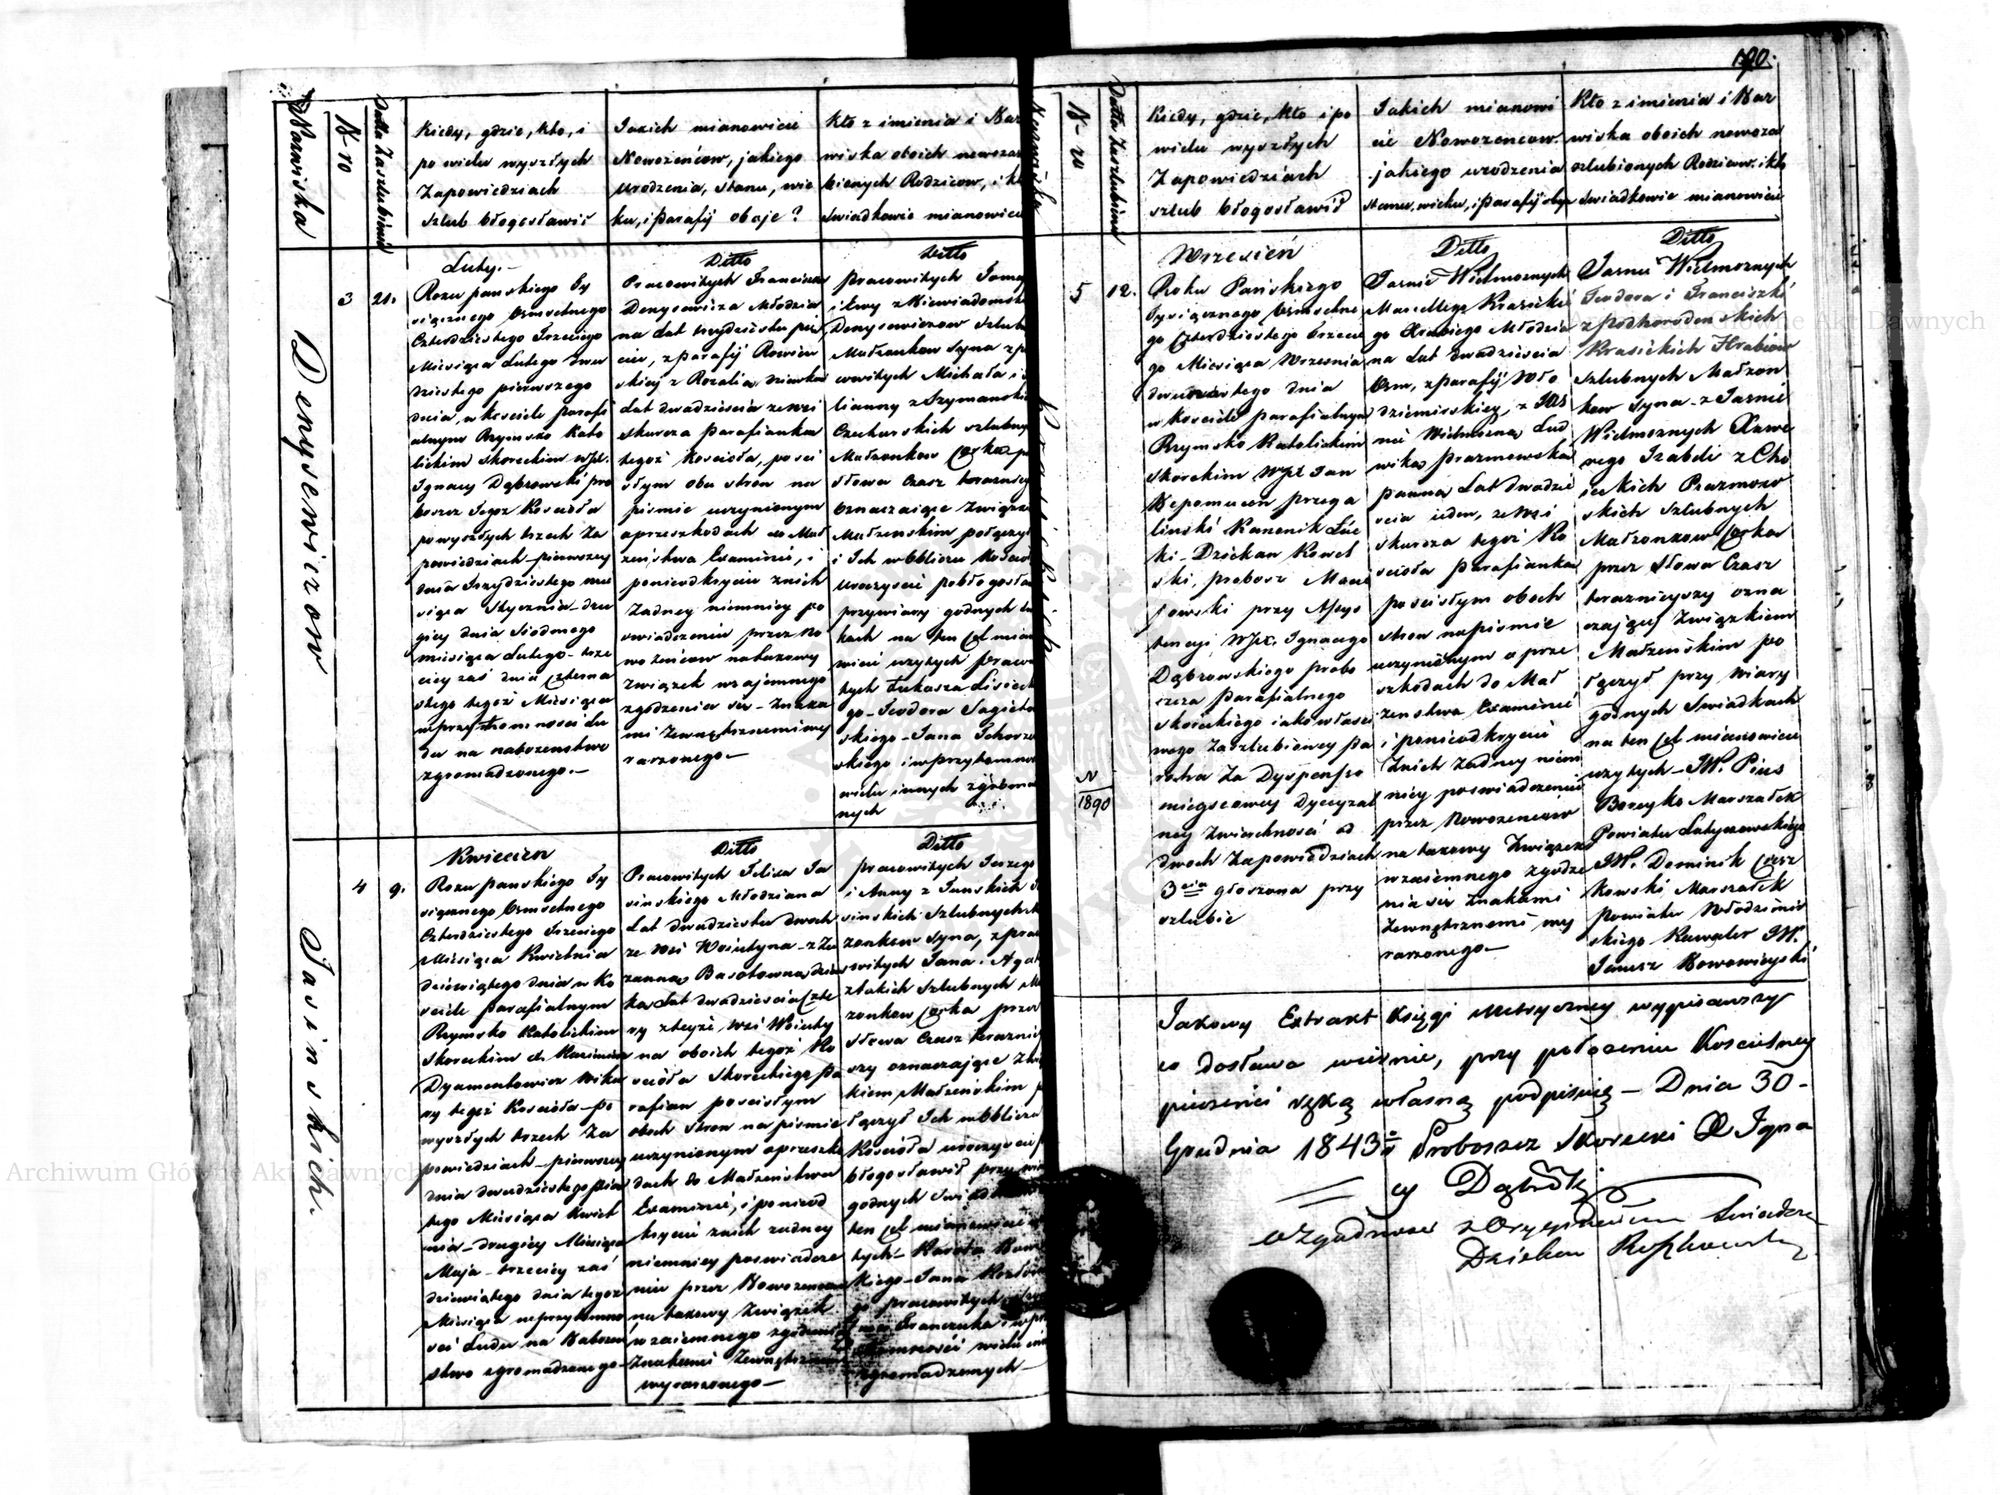 190.
Nazwiska
N-ro
Datta Zaszlubienia
Kiedy, gdzie, kto, i
po wielu wyszłych
Zapowiedziach
Szlub błogosławił
Jakich mianowicie
Nowożeńcow, jakiego
urodzenia, stanu, wie
ku, i parafij oboje?
Kto z imienia i Naz
wiska oboich nowoza
bionych Rodzicow, i k
Swiadkowie mianowicie
Denysewiczow
3
21.
Luty.-
Roku panskiego Ty
siącznego Osmsetnego
Czterdziestego Trzeciego
Miesiąca Lutego dwu
dziestego pierwszego
dnia, w kosciele parafi
alnym Rzymsko Kato
lickim Skoreckim WJX.
Ignacy Dąbrowski pro
boszcz tegoż Koscioła
po wyszłych trzech Za
powiedziach - pierwszey
dnia Trzydziestego mie
siąca Stycznia - dru
giey dnia Siodmego
miesiąca Lutego - trze
ciey zaś dnia Czterna
stego tegoż Miesiąca
w przytomności Lu
du na nabożenstwo
zgromadzonego.-
Ditto
Pracowitych Franciszka
Denysewicza Młodzia
na Lat trzydziestu pię
ciu, z parafij Rowien
skiey z Rozalią Dziewką
Lat dwadziescia ze wsi
Skurcza parafianka
tegoż Kosciola, po sci
słym obu stron na
pismie uczynionym
o przeszkodach do Mał
zenstwa Examinie, i
ponieodkryciu znich
żadney niemniey po
swiadczeniu przez No
wożeńcow na takowy
Związek wzajemnego
zgodzenia się - znaka
mi Zewnętrznemi wy
rażonego-
Ditto
Pracowitych Tomasz
i Ewy z Niewiadomsk
Denysewiczow Szlub
Małżonkow Syna z p
cowitych Michała i
lianny z Szymansk
Czekurskich szlubny
Małżonkow Corkę p
Słowa Czasz teraznie
Oznaczaiące Związk
Małżenskim połączył
i Ich w Obliczu Koscio
uroczyscie pobłogosła
przy wiary godnych
kach na ten Cel mian
wicie użytych praco
tych Łukasza Lisieck
go - Teodora Sagieto
skiego - Jana Tchorze
skiego i w przytomno
wielu innych zgroma
nych
Jasinskich.
4
9.
Kwiecien
Roku panskiego Ty
siącznego Osmsetnego
Czterdziestego Trzeciego
Miesiąca Kwietnia
dziewiątego dnia w Ko
sciele parafialnym
Rzymsko Katolickim
Skoreckim X. Kazimierz
Dyamentowicz Wika
ry tegoż Kosciola - po
wyszłych trzech Za
powiedziach - pierwszey
Maja - trzeciey zaś
dziewiątego dnia tegoż
Miesiąca w przytomno
ści Ludu na Nabożen
stwo zgromadzonego-
Ditto
Pracowitych Felixa Ja
sinskiego Młodziana
Lat dwadziestu dwoch
ze Wsi Woiutyna - z Zu
zanną Basotowną dziew
ką Lat dwadziescia Czte
ry zteyże wsi Woiuty
na oboich tegoż Ko
scioła Skoreckiego pa
rafian po scisłym
oboch stron na pismie
uczynionym o przeszko
dach do Małżenstwa
Examinie, i ponieod
kryciu znich żadney
niemniey poswiadcze
niu przez Nowożencow
na takowy Związek
wzaiemnego zgodzenia
Znakami Zewnętrznemi
wyrażonego-
Ditto
Pracowitych Jerzego
i Anny z Janskich
sinskich Szlubnych
zonkow Syna, z prac
owitych Jana i Agat
zonkow Corką przez
Słowa Czasz teraznie
szy oznaczające Zwią
kiem Małżenskim
łączył Ich w Obliczu
Kosciola uroczyscie
błogosławił przy wia
godnych Swiad
ten Cel mianowicie
tych - Karola
kiego - Jana
go pracowitych
wielu
zgromadzonych-
Nazwiska
N-ro
Datta Zaszlubienia
Kiedy, gdzie, kto i po
wielu wyszłych
Zapowiedziach
szlub błogosławił
Jakich mianowi
cie Nowożencow.
jakiego urodzenia
stanu, wieku, i parafij oboje
Kto z imienia i Naz
wiska oboich nowoza
szlubionych Rodzicow, i kto
Swiadkowie mianowicie
5
12.
N
1890
Wrzesień
Roku Pańskiego
Tysiącznego Osmsetne
go Czterdziestego trzecie
go Miesiąca Wrzesnia
dwunastego dnia
w kościele parafialnym
Rzymsko Katolickim
Skoreckim WJX Jan
Nepomucen Przega
linski Kanonik Łuc
ki - Dziekan Kowel
ski, proboszcz Macie
jowski przy Assys
tencyi WJX. Ignacego
Dąbrowskiego probo
szcza parafialnego
Skoreckiego iako własci
wego Zaszlubiaiącey pa
rocha Za Dyspensą
mieyscowey Dyecezal
ney Zwierchnosci od
dwoch Zapowiedziach
3cia głoszona przy
szlubie
Ditto
Jasnie Wielmożnych
Marcellego Krasickie
go Hrabiego Młodzia
na Lat dwadziescia
Osm, z parafij Wło
dzimirskiey, z JW
nie Wielmożną Lud
wiką Prazmowską
panną Lat dwadzie
scia ieden, ze Wsi
Skurcza tegoż Ko
scioła parafianką
po scisłym oboch
stron na pismie
uczynionym o prze
szkodach do Mał
żenstwa Examinie
i ponieodkryciu
Znich Zadney niem
niey poswiadczeniu
przez Nowożencow
na takowy Związek
wzaiemnego zgodze
nia się Znakami
Zewnętrznemi wy
rażonego-
Ditto
Jasnie Wielmożnych
Teodora i Franciszki
z Podhorodenskich
Krasickich Hrabiow
Szlubnych Małżon
kow Syna - z Jasnie
Wielmożnych Xawe
rego Izabeli z Cho
ieckich Prazmow
skich Szlubnych
Małżonkow Corką
przez Słowa Czasz
teraznieyszy ozna
czające Związkiem
Małżenskim po
łączył przy Wiary
godnych Swiadkach
na ten Cel mianowicie
użytych - JW. Pius
Boreyko Marszałek
Powiatu Latyczowskiego
JW. Dominik Czesz
kowski Marszałek
Powiatu Włodzimir
skiego Kawaler JW.
Janusz Nowowieyski
Jakowy Extrakt Księgi Metryczney wypisawszy
co dosłowa wiernie, przy położeniu Kościelney
pieczęci ręką własną podpisuię - Dnia 30-
Grudnia 1843 Proboszcz Skorecki X Igna
cy Dąbrowski
o Zgodnosci z Oryginałem Swiadczę
Dziekan
Archiwum Główne Akt Dawnych
Archiwum Główne Akt Dawnych